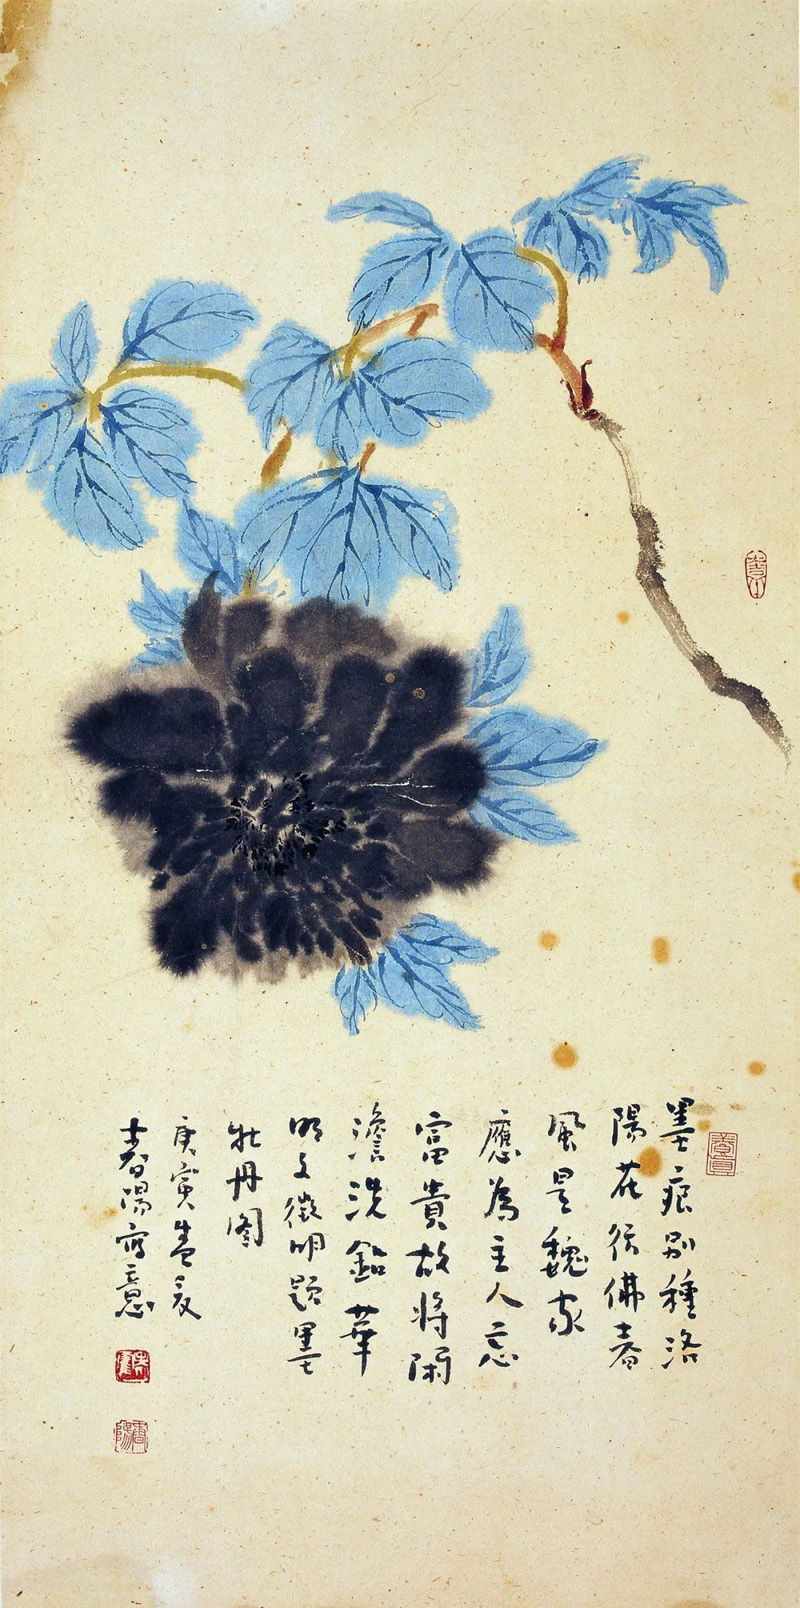 墨痕別種洛
陽花彷佛春
風是魏家
應為主人忘
富貴故將閑
澹洗鉛華
明文徵明題墨
牡丹圖
庚寅孟夏
春陽寫意